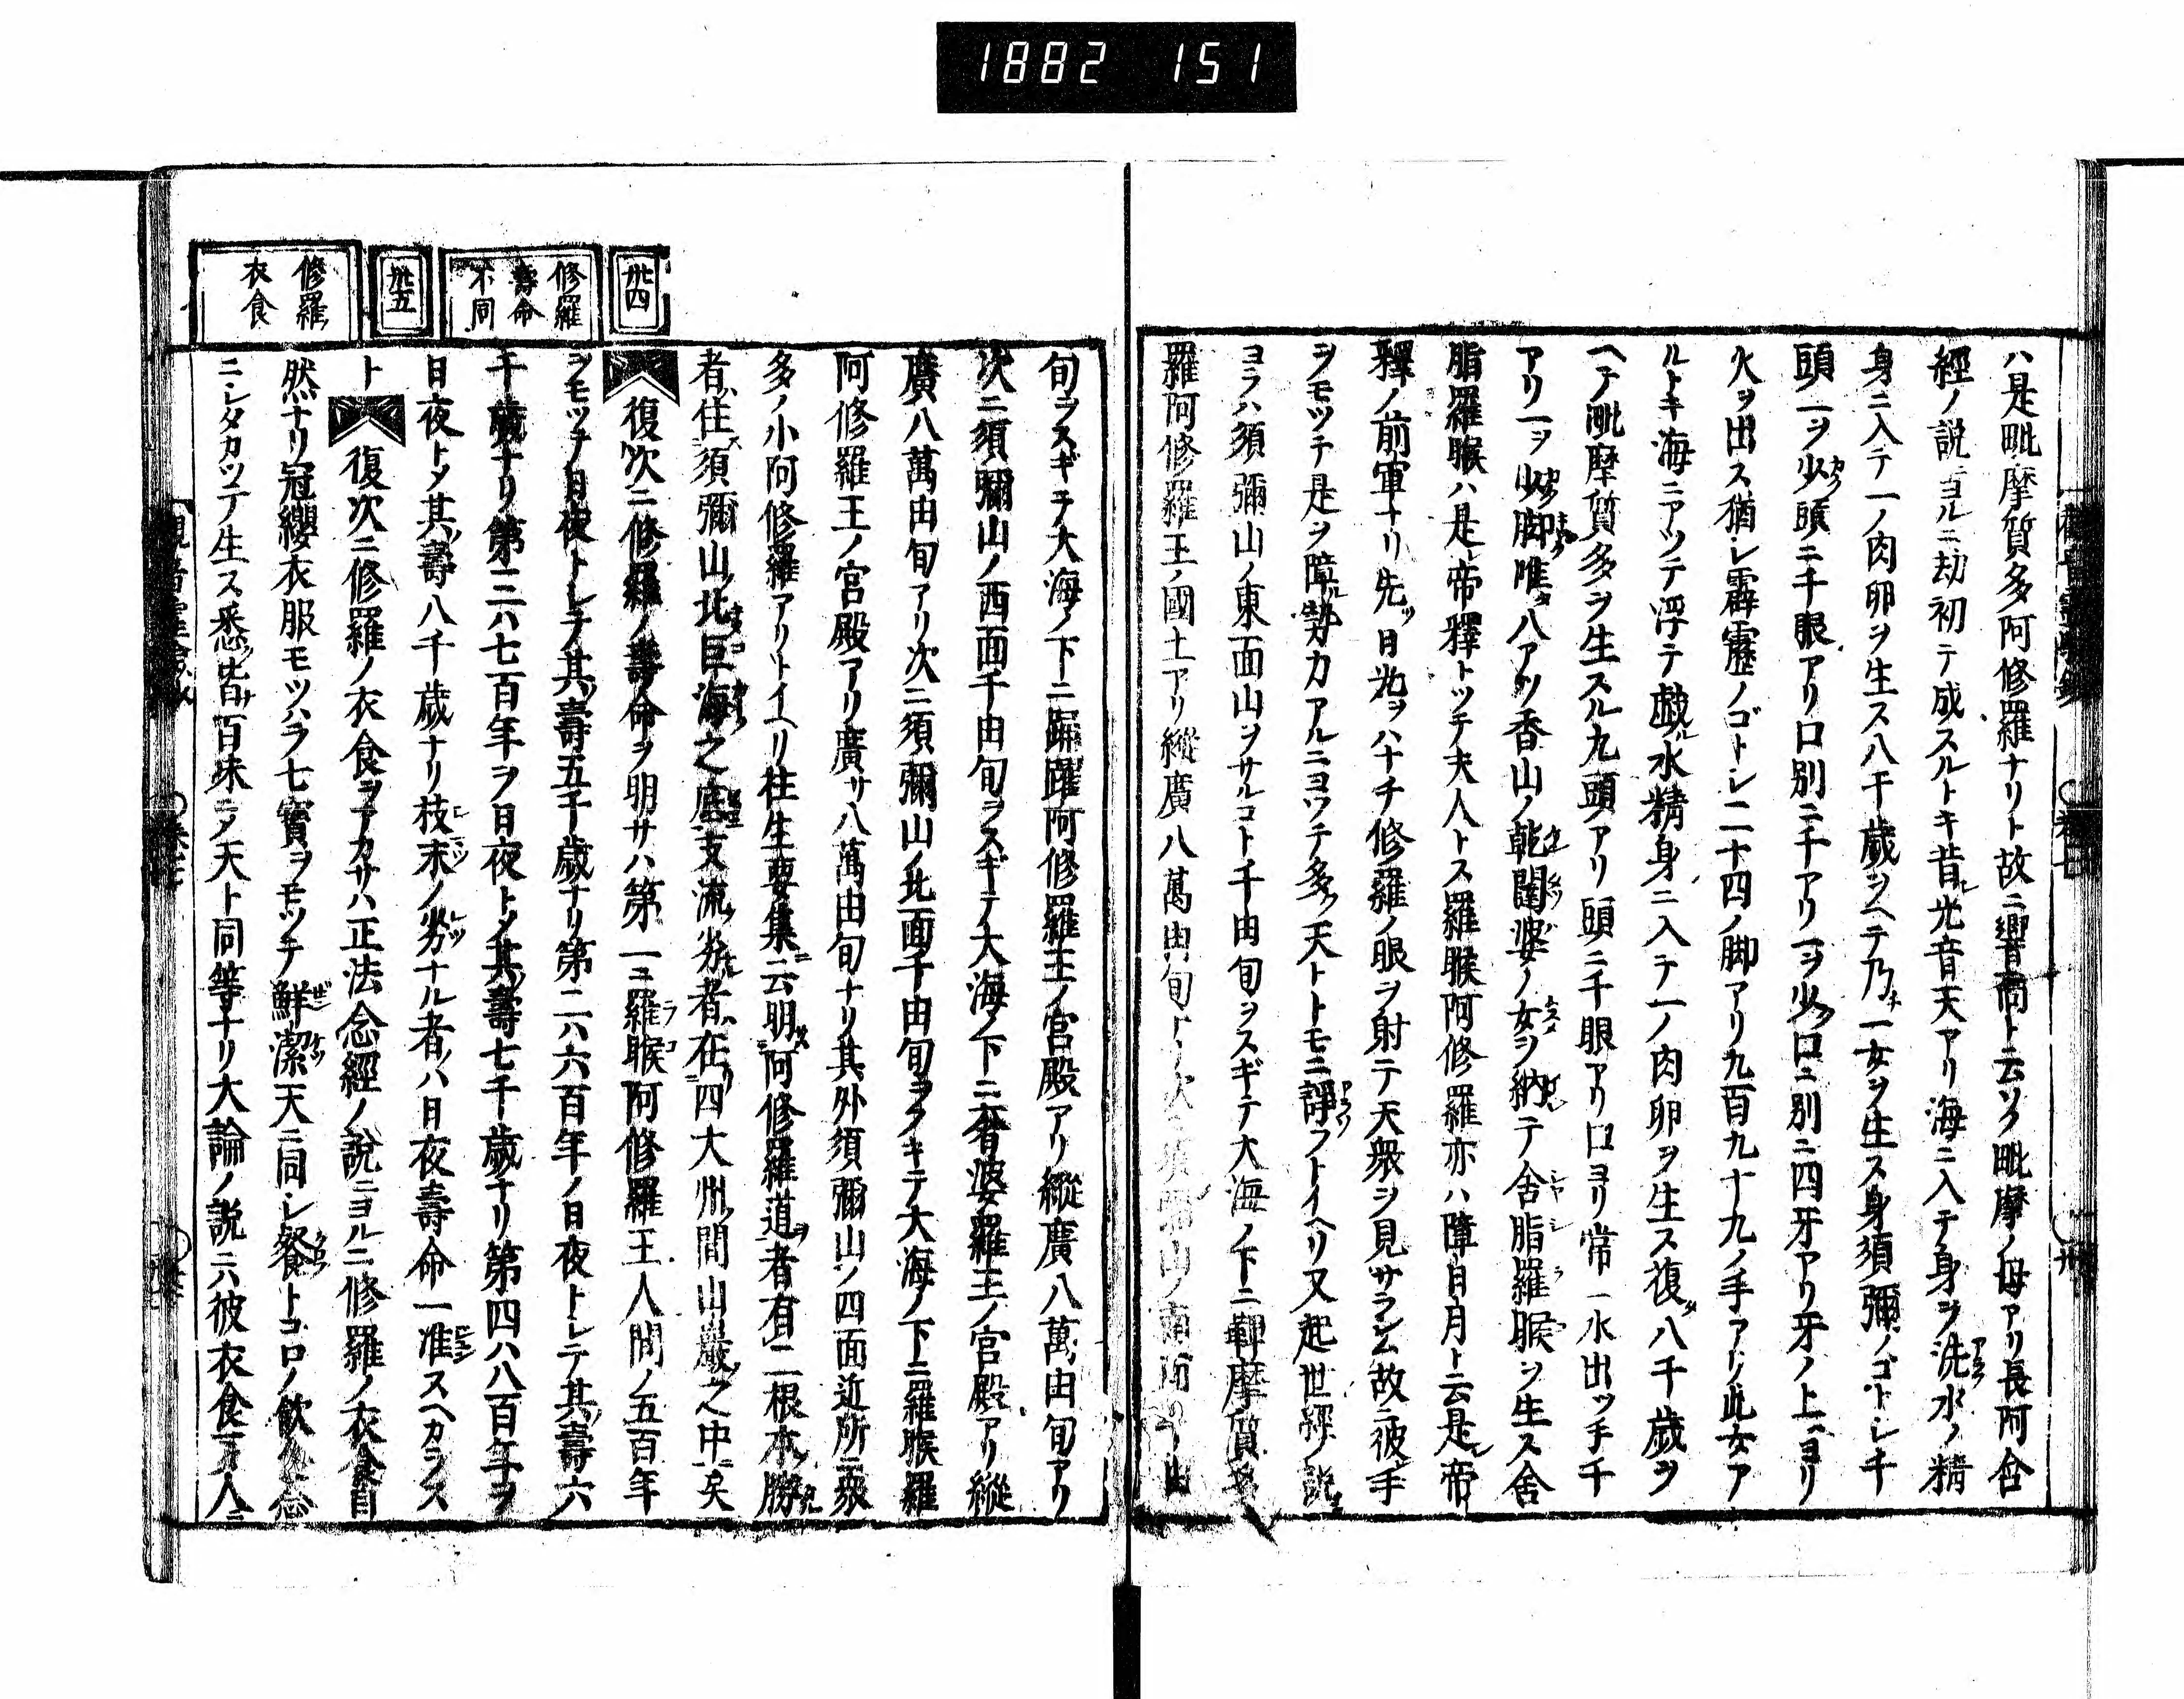 1882 151
ハ是毗摩質多阿修羅ナリト故ニ響高ト云ツク毗摩ノ母アリ長阿含
經ノ説ヨルニ劫初テ成スルトキ昔光音天アリ海ニ入テ身ヲ洗水ノ精
身ニ入テ一ノ肉卵ヲ生ス八千歳ヲヘテ乃チ一女ヲ生ス身須彌ノゴトシ千
頭一ヲ少頭ニ千眼アリ口別ニ千アリ一ヲ少口ニ別ニ四牙アリ牙ノ上ヨリ
火ヲ出ス猶シ霹靂ノゴトシ二十四ノ脚アリ九百九十九ノ手アリ此女ア
ルトキ海ニアツテ浮テ戯ル水精身ニ入テ一ノ肉卵ヲ生ス復タ八千歳ヲ
ヘテ毗摩質多ヲ生スル九頭アリ頭ニ千眼アリ口ヨリ常一水出ツ手千
アリ一ヲ少脚唯タ八アツ香山ノ乾闥婆ノ女ヲ納テ舍脂羅睺ヲ生ス舍
脂羅睺ハ是帝釋トツテ夫人トス羅睺阿修羅亦ハ障日月ト云是レ帝
釋ノ前軍ナリ先ツ日光ヲハナチ修羅ノ眼ヲ射テ天衆ヲ見サラシム故ニ彼手
ヲモツテ是ヲ障ル勢力アルニヨツテ多ク天トトモニ諍フトイヘリ又起世經ノ説ニ
ヨラハ須彌山ノ東面山ヲサルコト千由旬ヲスギテ大海ノ下ニ鞞摩質多
羅阿修羅王ノ國土アリ縱廣八萬由旬ナリ次ニ須彌山ノ南面千由
旬ヲスギテ大海ノ下ニ踊躍阿修羅王ノ宮殿アリ縱廣八萬由旬アリ
次ニ須彌山ノ西面千由旬ヲスギテ大海ノ下ニ奢婆羅王ノ宮殿アリ縱
廣八萬由旬アリ次ニ須彌山ノ北面千由旬ヲスギテ大海ノ下ニ羅睺羅
阿修羅王ノ宮殿アリ廣サ八萬由旬ナリ其外須彌山ノ四面近所ニ衆
多ノ小阿修羅アリトイヘリ往生要集ニ云明阿修羅道者有二根本勝
者ハ住須彌山北巨海之底支流劣者ハ在四大州間山巖之中ニ矣
卅四
修羅壽命不同
復次ニ修羅ノ壽命ヲ明サハ第一ニ羅睺阿修羅王人間ノ五百年
ヲモツテ日夜トシテ其壽五千歳ナリ第二ハ六百年ノ日夜トシテ其壽六
千歳ナリ第三ハ七百年ヲ日夜トメ其壽七千歳ナリ第四ハ八百年ヲ
日夜トメ其壽八千歳ナリ枝末ノ劣ナル者ハ日夜壽命一准スヘカラス
ト
卅五
修羅衣食
復次ニ修羅ノ衣食ヲアカサハ正法念經ノ説ニヨルニ修羅ノ衣食自
然ナリ冠纓衣服モツハラ七寶ヲモツテ鮮潔天ニ同シ餐トコロノ飲食念
ニシタカツテ生ス悉ク皆百味ニメ天ト同等ナリ大論ノ説ニハ彼衣食人ニ